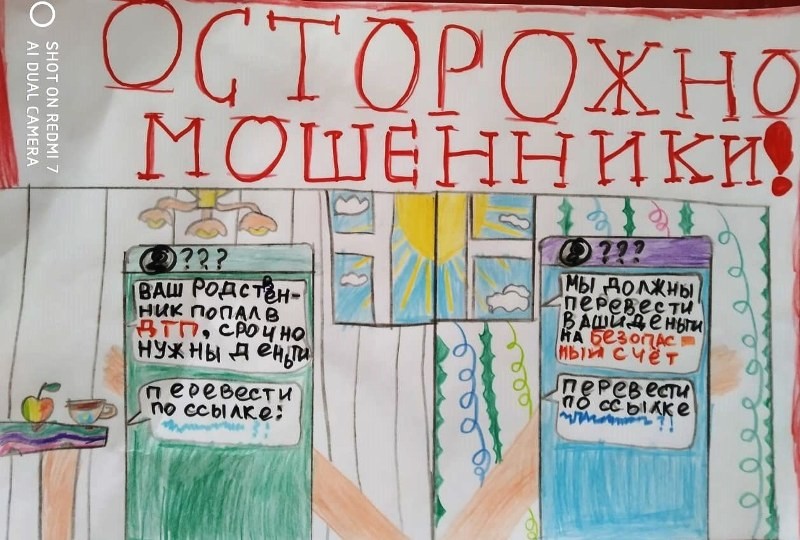 SHOT ON REDMI 7
AI DUAL CAMERA
ОСТОРОЖНО
МОШЕННИКИ!
???
ВАШ РОДСТВЕН-
НИК ПОПАЛ В
ДТП, СРОЧНО
НУЖНЫ ДЕНЬГИ
ПЕРЕВЕСТИ
ПО ССЫЛКЕ:
?!
???
МЫ ДОЛЖНЫ
ПЕРЕВЕСТИ
ВАШИ ДЕНЬГИ
НА БЕЗОПАС-
НЫЙ СЧЁТ
ПЕРЕВЕСТИ
ПО ССЫЛКЕ
?!